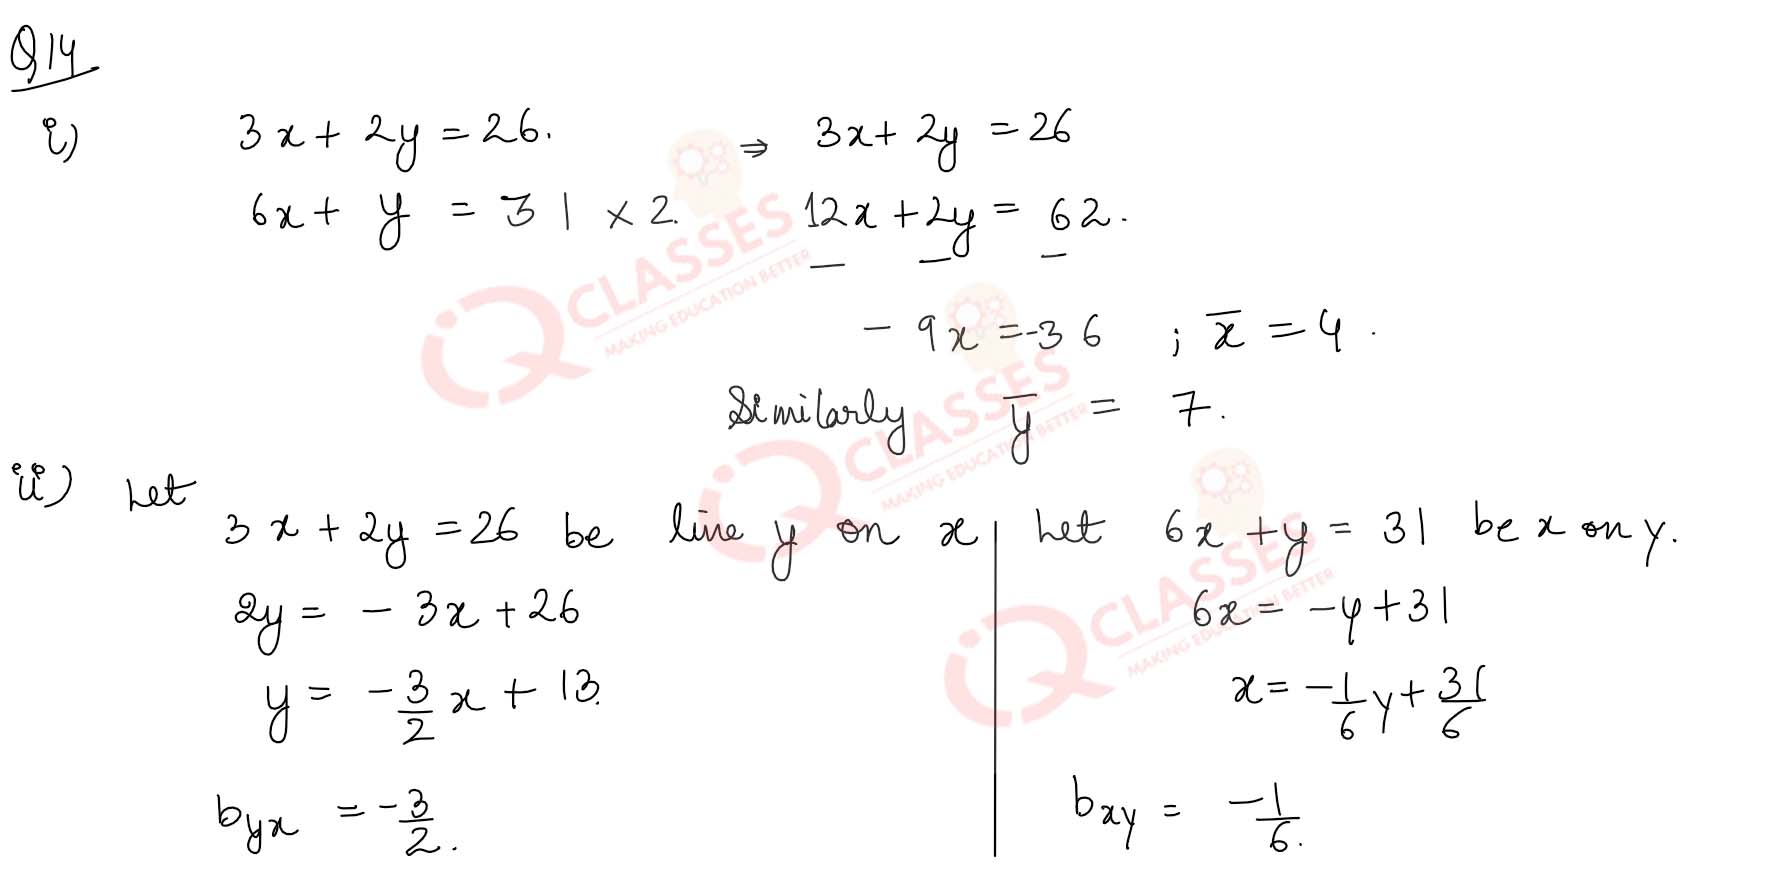 Q14
i) 3x + 2y = 26. ⇒ 3x + 2y = 26
6x + y = 31 × 2. 12x + 2y = 62.
— — —
- 9x = -36 ; x̅ = 4.
Similarly y̅ = 7.
ii) Let
3x + 2y = 26 be line y on x | Let 6x + y = 31 be x on y.
2y = - 3x + 26 | 6x = -y + 31
y = -3/2 x + 13. | x = -1/6 y + 31/6
byx = -3/2. | bxy = -1/6.
iQ CLASSES
MAKING EDUCATION BETTER
iQ CLASSES
MAKING EDUCATION BETTER
iQ CLASSES
MAKING EDUCATION BETTER